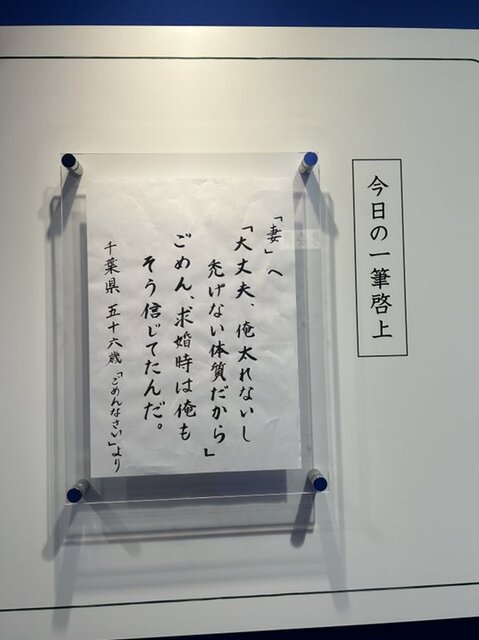 今日の一筆啓上
「妻」へ
「大丈夫、俺太れないし
禿げない体質だから」
ごめん、求婚時は俺も
そう信じてたんだ。
千葉県 五十六歳「ごめんなさい」より